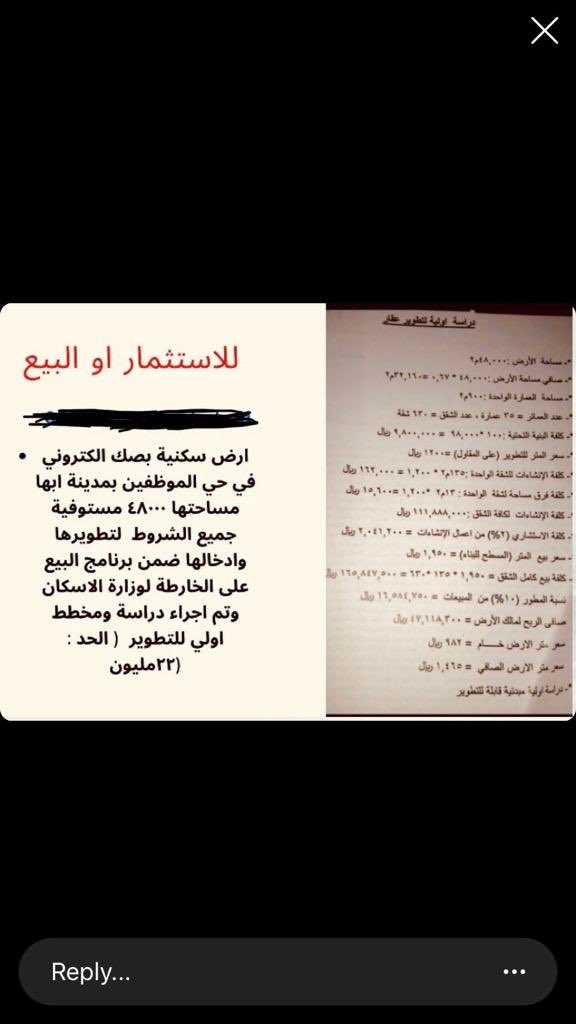 للاستثمار او البيع
• ارض سكنية بصك الكتروني
في حي الموظفين بمدينة ابها
مساحتها ٤٨٠٠٠ مستوفية
جميع الشروط لتطويرها
وادخالها ضمن برنامج البيع
على الخارطة لوزارة الاسكان
وتم اجراء دراسة ومخطط
اولي للتطوير ( الحد :
٢٢مليون)
دراسة اولية لتطوير عقار
*- مساحة الأرض :٤٨,٠٠٠م٢
*- صافي مساحة الأرض :٤٨,٠٠٠ * ٠,٦٧ =٣٢,١٦٠م٢
*- مساحة العمارة الواحدة :٩٠٠م٢
*- عدد العمائر = ٣٥ عمارة ، عدد الشقق = ٦٣٠ شقة
*- كلفة البنية التحتية :١٠٠ *٩٨,٠٠٠ = ٩,٨٠٠,٠٠٠ ريال
*- سعر المتر للتطوير (على المقاول) =١٢٠٠ ريال
*- كلفة الإنشاءات للشقة الواحدة :١٣٥م٢ * ١,٢٠٠ = ١٦٢,٠٠٠ ريال
*- كلفة فرق مساحة لشقة الواحدة : ١٣م٢ *١,٢٠٠ =١٥,٦٠٠ ريال
*- كلفة الإنشاءات لكافة الشقق :١١١,٨٨٨,٠٠٠ ريال
*- كلفة الاستشاري (٢%) من اعمال الإنشاءات = ٢,٠٤١,٢٠٠ ريال
*- سعر بيع المتر (المسطح للبناء) = ١,٩٥٠ ريال
*- كلفة بيع كامل الشقق = ١,٩٥٠ * ١٣٥ *٦٣٠ = ١٦٥,٨٤٧,٥٠٠ ريال
نسبة المطور (١٠%) من المبيعات = ١٦,٥٨٤,٧٥٠ ريال
صافي الربح لمالك الأرض = ٤٧,١١٨,٣٠٠ ريال
سعر متر الارض خـــام = ٩٨٢ ريال
سعر متر الارض الصافي = ١,٤٦٥ ريال
*- دراسة اولية مبدئية قابلة للتطوير
Reply...